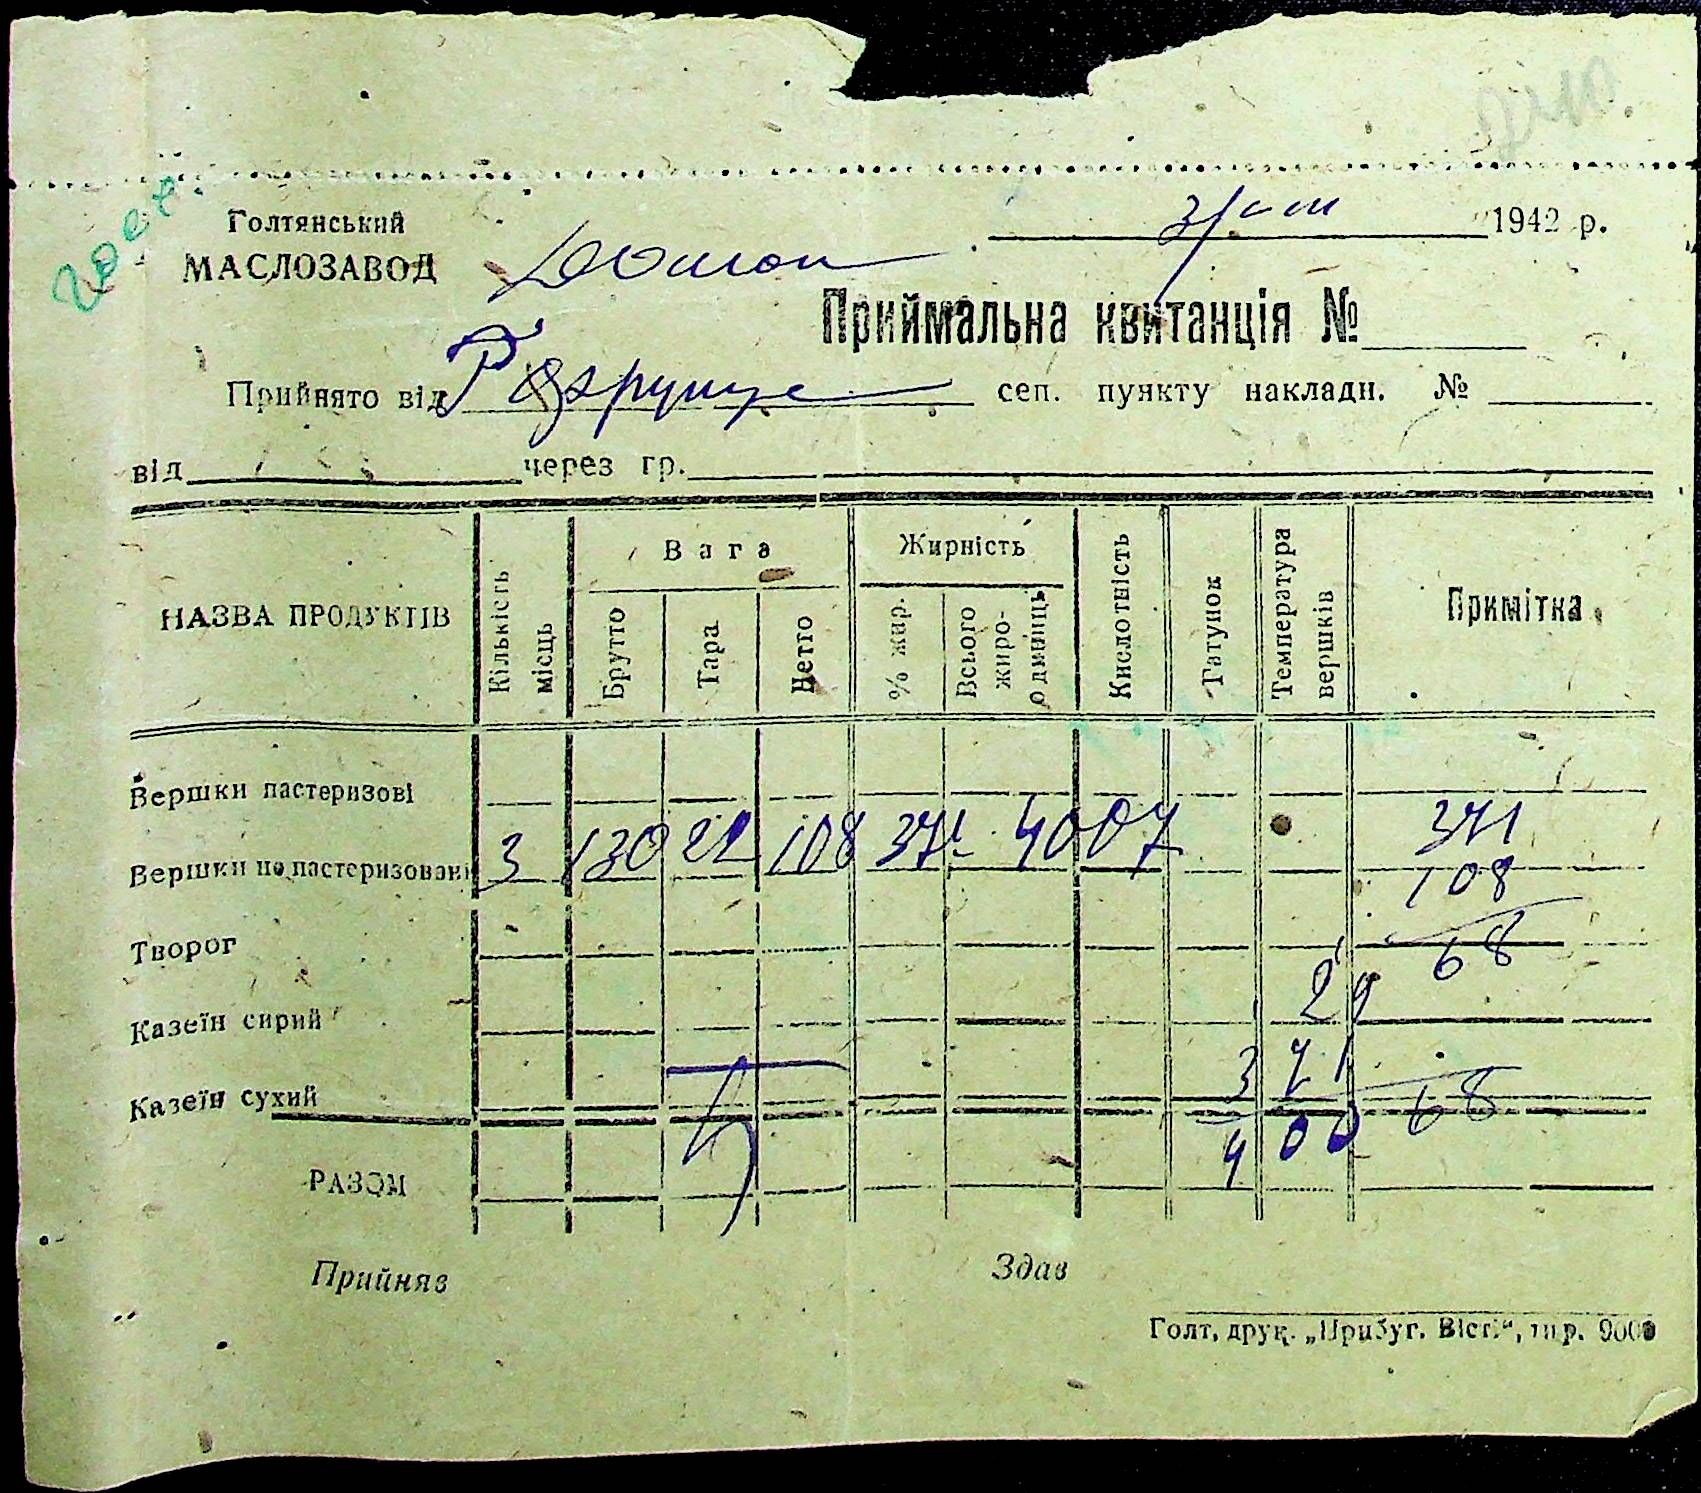 Голтянський
МАСЛОЗАВОД
1942 р.
Приймальна квитанція №
Прийнято від сеп. пункту накладн. №
від через гр.
НАЗВА ПРОДУКТІВ
Кількість місць
Вага
Брутто
Тара
Нетто
Жирність
% жир.
Всього жиро-одиниць
Кислотність
Гатунок
Температура вершків
Примітка
Вершки пастеризові
371
Вершки не пастеризовані 3 130 22 108 371 40 07
108
Творог
68
29
Казеїн сирий
371
Казеїн сухий
68
400
РАЗОМ
Прийняв Здав
Голт. друк. „Прибуг. Вісті“, тир. 9000